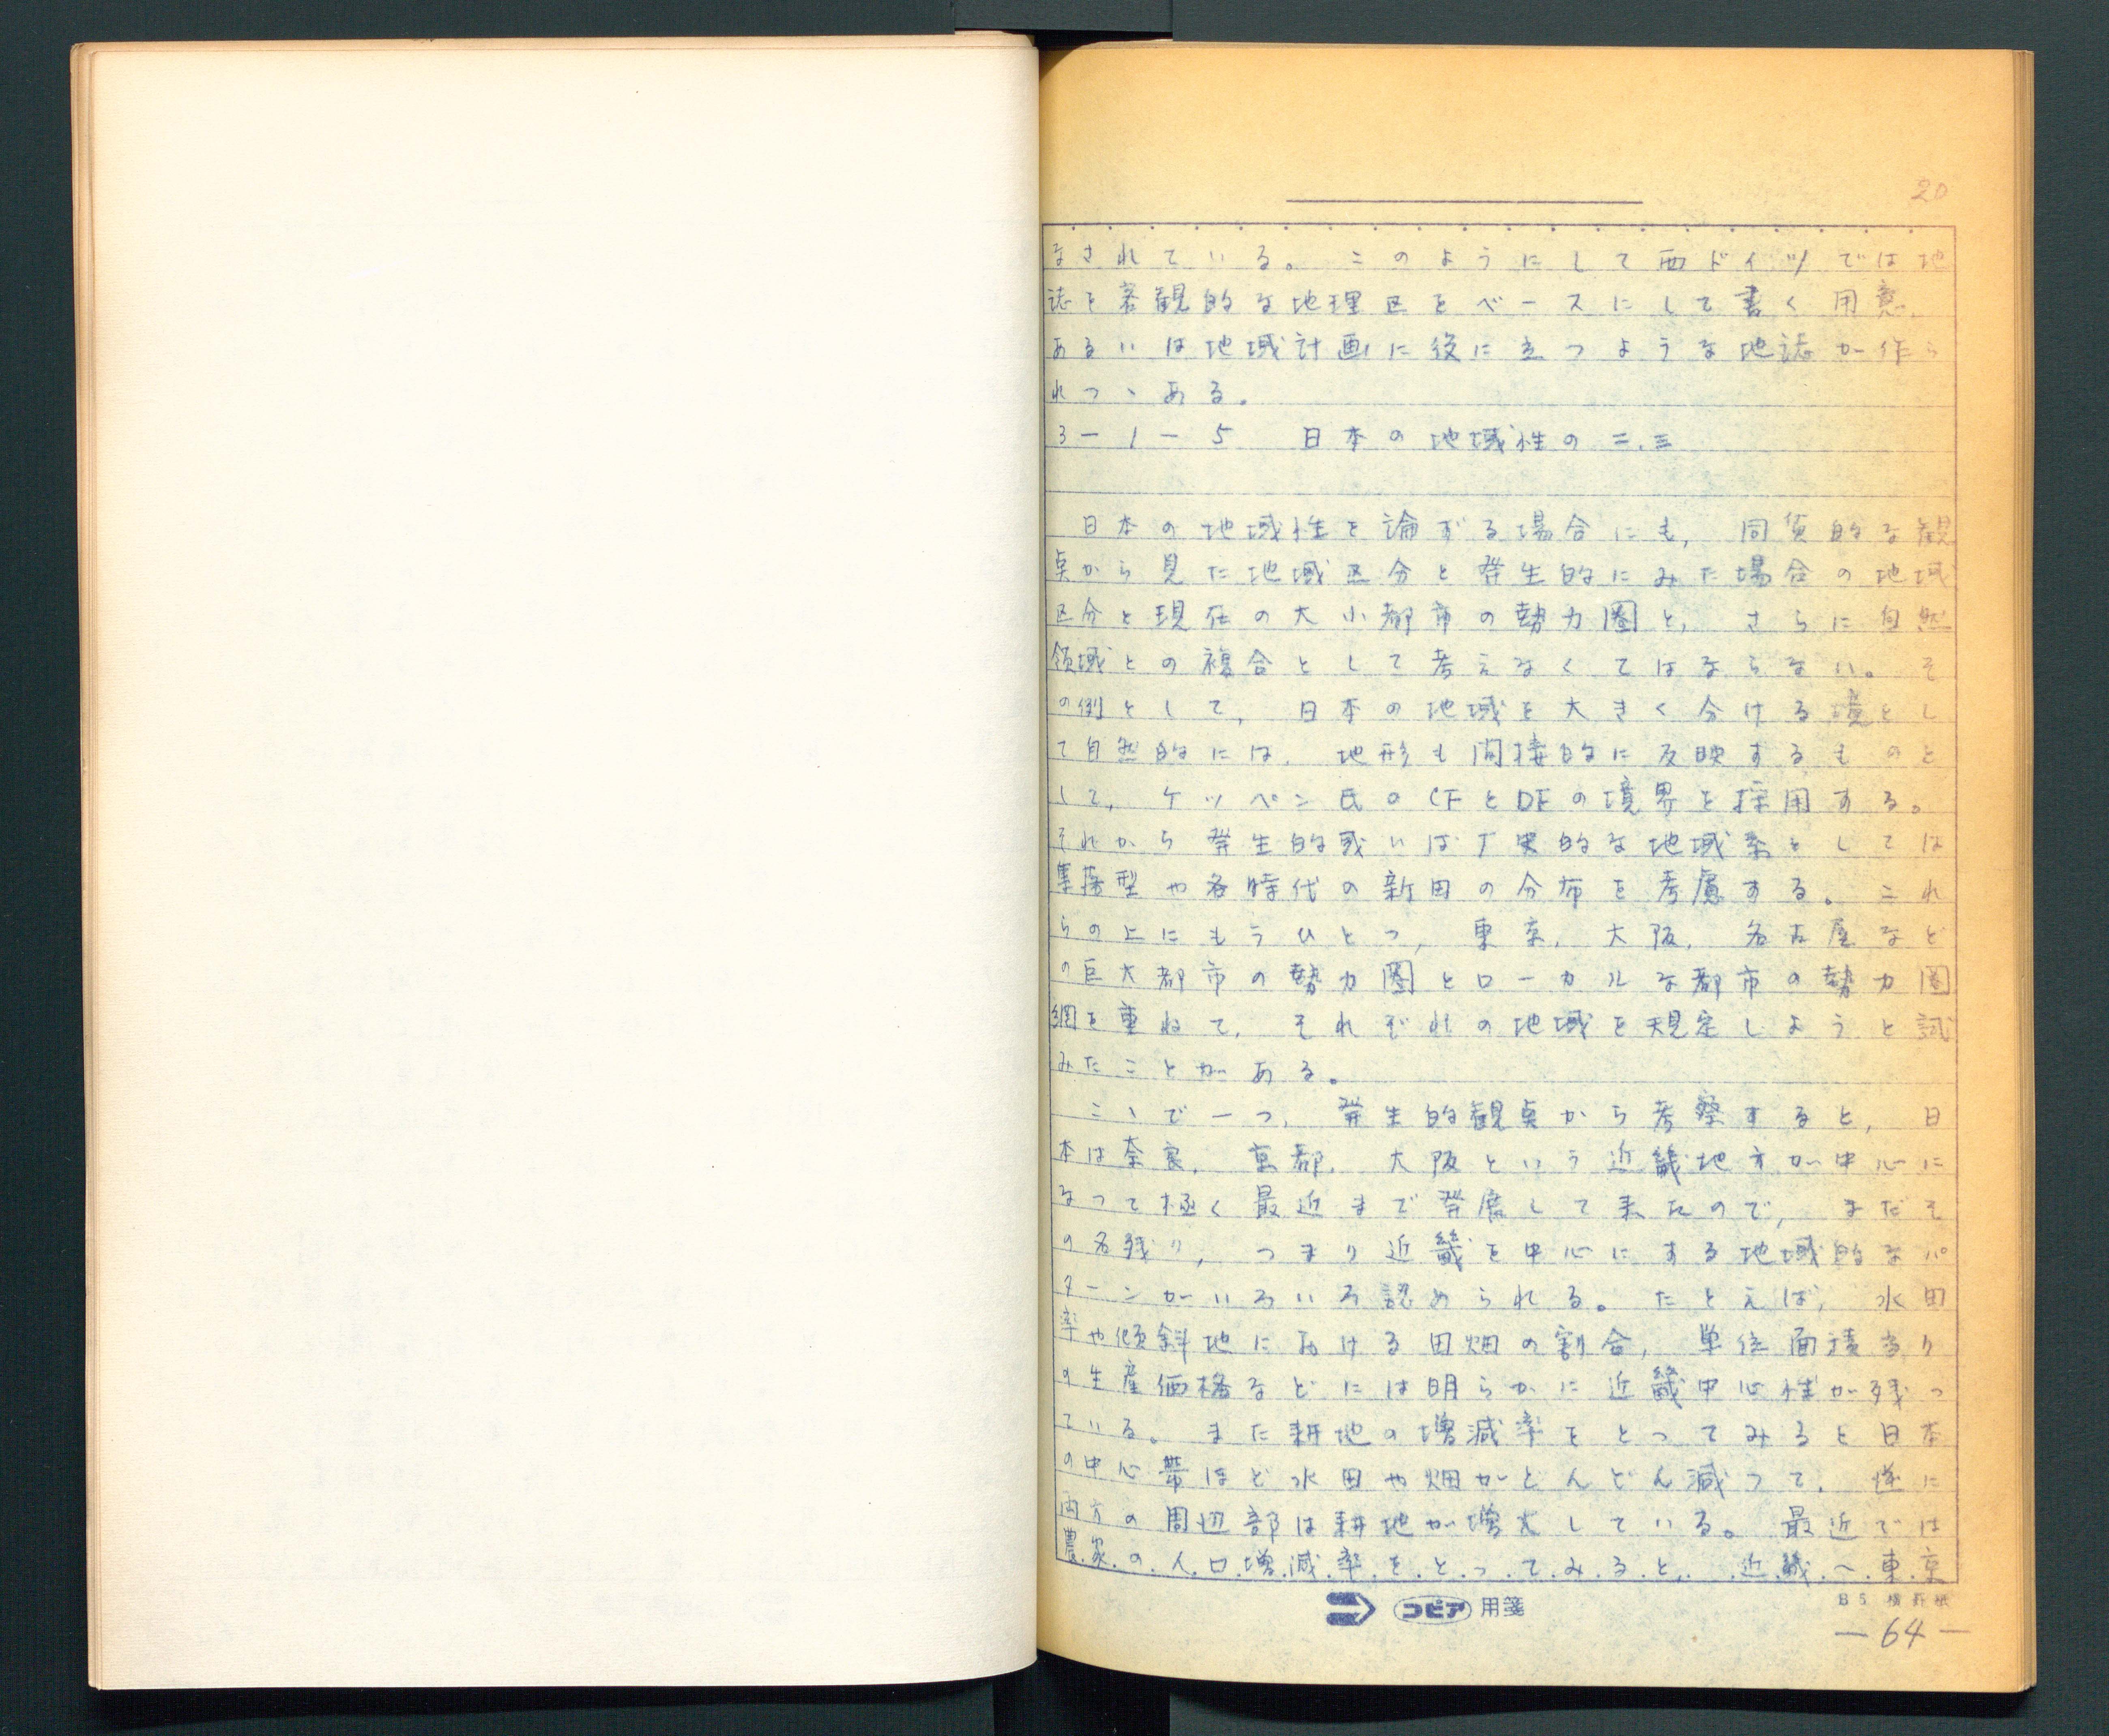 20
なされている。 このようにして西ドイツでは地
誌を客観的な地理区をベースにして書く用意,
あるいは地域計画に役に立つような地誌が作ら
れつヽある。
3-1-5 日本の地域性の二.三
日本の地域性を論ずる場合にも, 同質的な観
点から見た地域区分と発生的にみた場合の地域
区分と現在の大小都市の勢力圏と, さらに自然
領域との複合として考えなくてはならない。 そ
の例として, 日本の地域を大きく分ける境とし
て自然的には, 地形も間接的に反映するものと
して, ケッペン氏のCfとDfの境界を採用する。
それから発生的或いは丁史的な地域系としては
集落型や各時代の新田の分布を考慮する。 これ
らの上にもうひとつ, 東京, 大阪, 名古屋など
の巨大都市の勢力圏とローカルな都市の勢力圏
網を重ねて, それぞれの地域を規定しようと試
みたことがある。
こヽで一つ, 発生的観点から考察すると, 日
本は奈良, 京都, 大阪という近畿地方が中心に
なって極く最近まで発展して来たので, まだそ
の名残り, つまり近畿を中心にする地域的なパ
ターンがいろいろ認められる。 たとえば, 水田
率や傾斜地における田畑の割合, 単位面積当り
の生産価格などには明らかに近畿中心性が残っ
ている。 また耕地の増減率をとってみると日本
の中心帯ほど水田や畑がどんどん減って, 逆に
両方の周辺部は耕地が増大している。 最近では
農家の人口増減率をとってみると, 近畿〜東京
コピア 用箋
B5 横罫紙
—64—